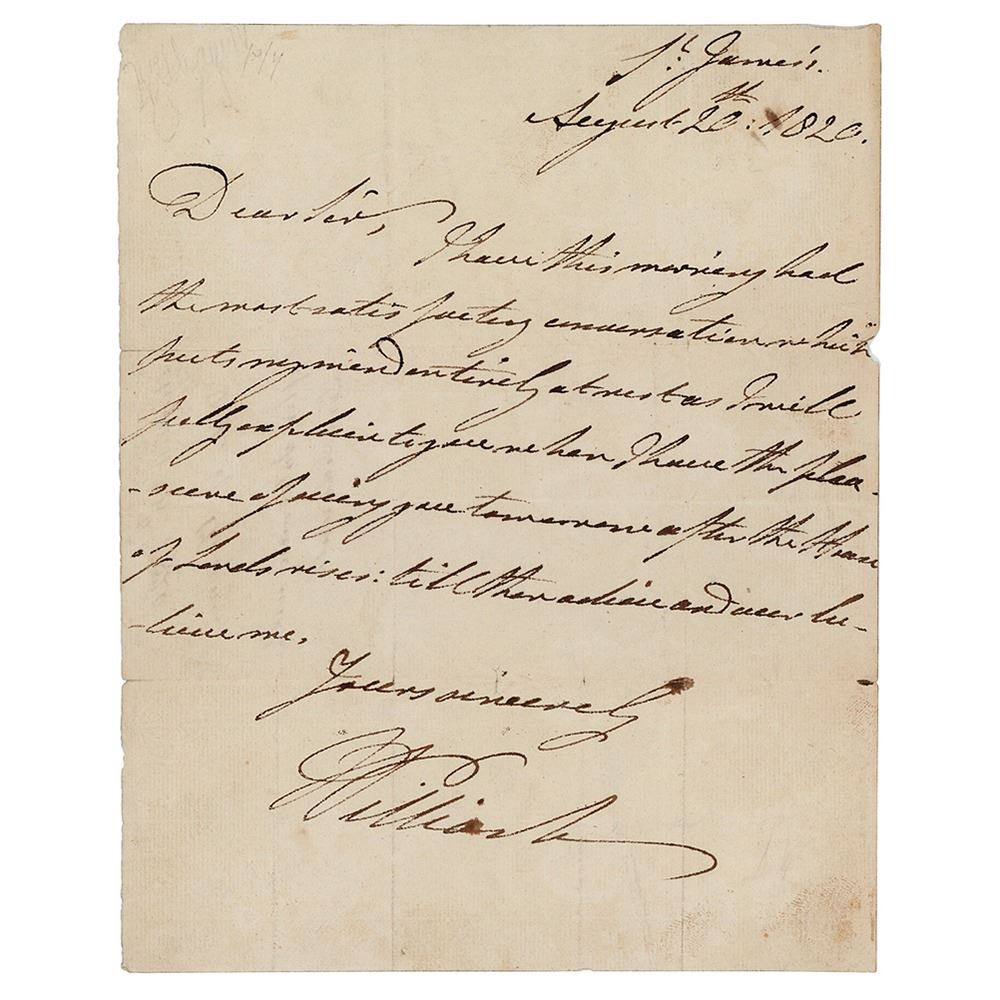 St. James's.
August 20th: 1820.
Dear Sir,
I have this morning had
the most satisfactory conversation which
puts my mind entirely at rest as I will
fully explain to you when I have the plea-
-sure of seeing you tomorrow after the House
of Lords rises: till then adieu and ever be-
-lieve me,
Yours sincerely
William